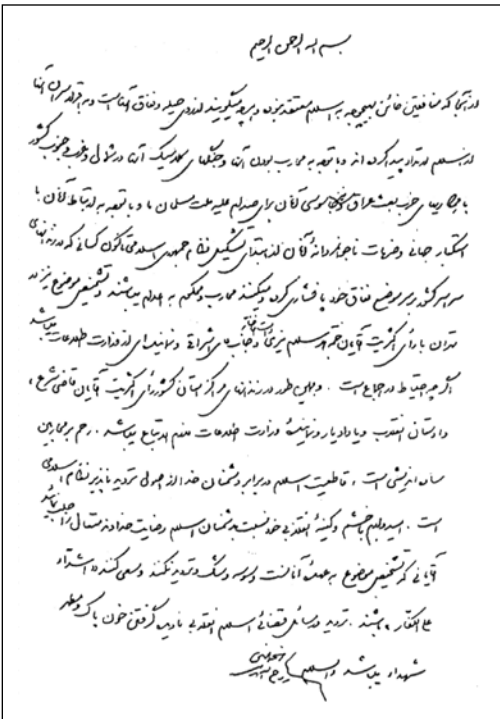 بسم الله الرحمن الرحیم
از آنجا که منافقین خائن به هیچ وجه به اسلام معتقد نبوده و هر چه میگویند از روی حیله و نفاق آنهاست و به اقرار سران آنها
از اسلام ارتداد پیدا کرده‌اند و با توجه به محارب بودن آنها و جنگهای کلاسیک آنها در شمال و غرب و جنوب کشور
با همکاریهای حزب بعث عراق و نیز جاسوسی آنان برای صدام علیه ملت مسلمان ما و با توجه به ارتباط آنان با
استکبار جهانی و ضربات ناجوانمردانهٔ آنان از ابتدای تشکیل نظام جمهوری اسلامی تا کنون کسانی که در زندانهای
سراسر کشور بر سر موضع نفاق خود پافشاری کرده و میکنند محارب و محکوم به اعدام میباشند و تشخیص موضوع نیز در
تهران با رای اکثریت آقایان حجة الاسلام نیری دامت افاضاته و جناب آقای اشراقی و نماینده‌ای از وزارت اطلاعات میباشد
اگر چه احتیاط در اجماع است . و همین طور در زندانهای مراکز استان کشور رای اکثریت آقایان قاضی شرع ،
دادستان انقلاب و یا دادیار و نمایندهٔ وزارت اطلاعات لازم الاتباع میباشد . رحم بر محاربین
ساده اندیشی است ، قاطعیت اسلام در برابر دشمنان خدا از اصول تردید ناپذیر نظام اسلامی
است . امیدوارم با خشم و کینهٔ انقلابی خود نسبت به دشمنان اسلام رضایت خداوند متعال را جلب نمائید
آقایانی که تشخیص موضوع به عهدهٔ آنانست وسوسه و شک و تردید نکنند و سعی کنند « اشداء
علی الکفار » باشند . تردید در مسائل قضائی اسلام انقلابی نادیده گرفتن خون پاک و مطهر
شهداء میباشد والسلام
روح الله الموسوی الخمینی